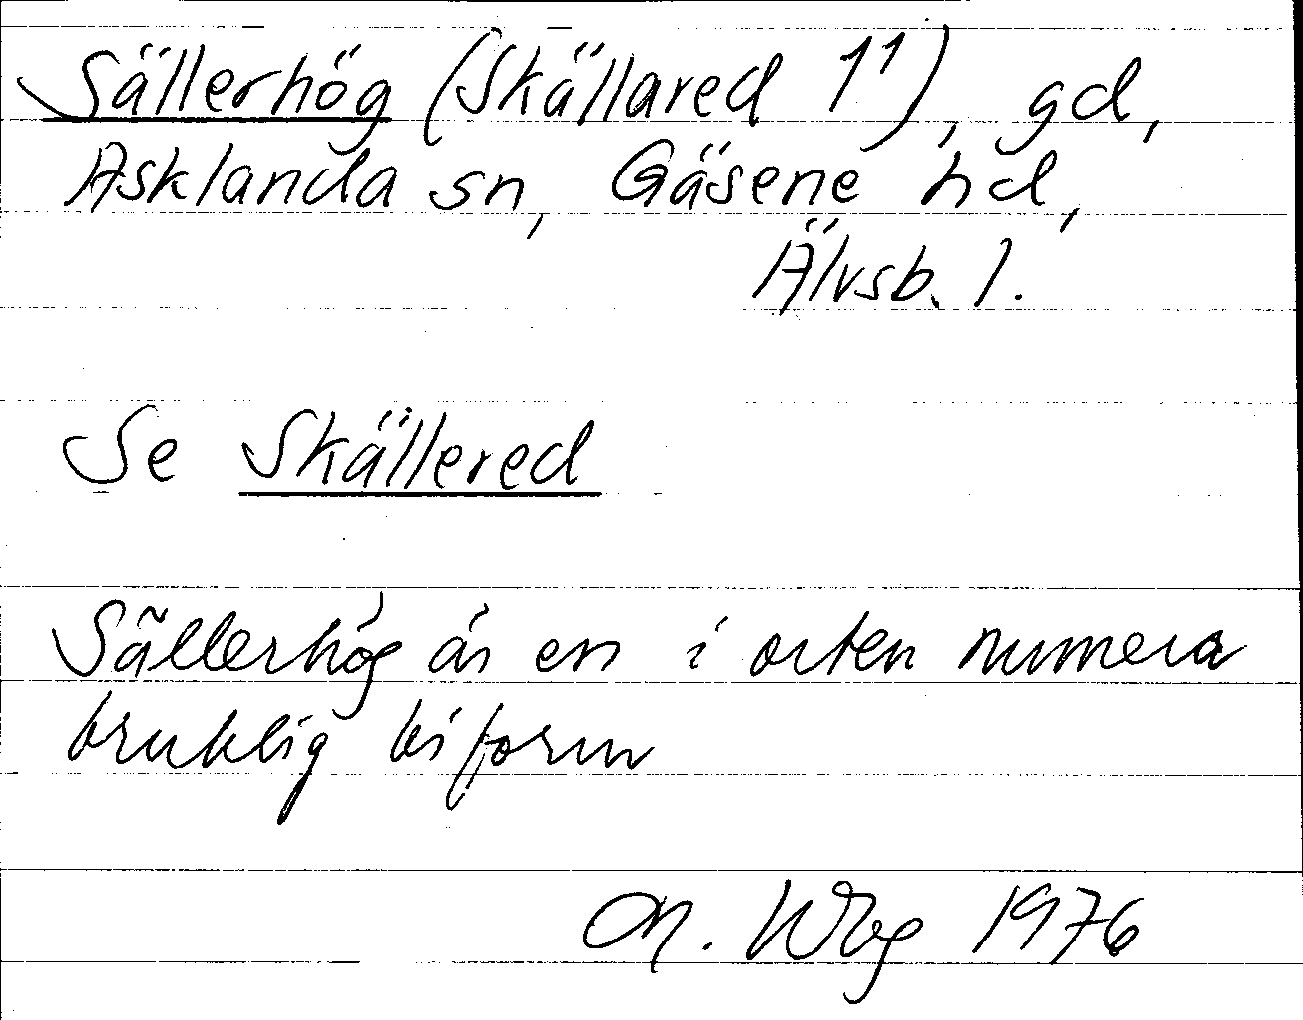 Sällerhög (Skällared 1¹), gd,
Asklanda sn, Gäsene hd,
Älvsb. l.
Se Skällered
Sällerhög är en i orten numera
bruklig biform
M. Wbg 1976